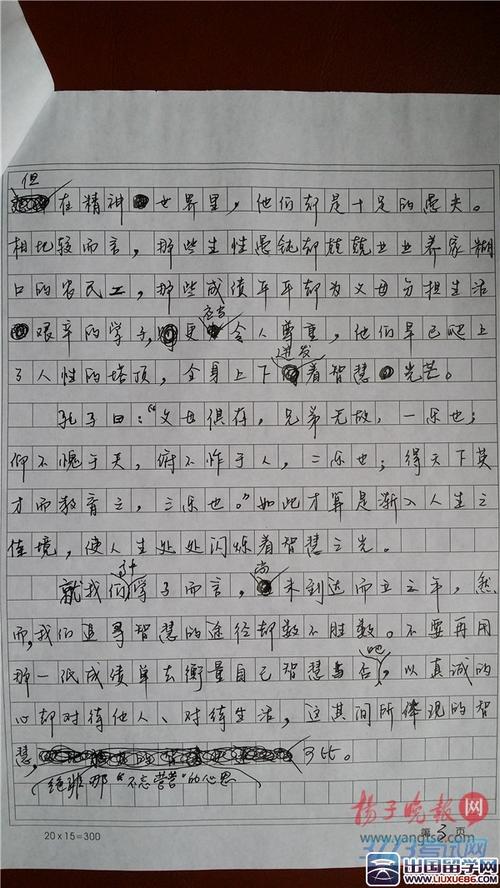 但
在精神世界里，他们却是十足的愚夫。
相比较而言，那些生性愚钝却兢兢业业养家糊
口的农民工，那些成绩平平却为父母分担生活
艰辛的学子，更应当令人尊重，他们早已爬上
了人性的塔顶，全身上下迸发着智慧光芒。
孔子曰：“父母俱存，兄弟无故，一乐也；
仰不愧于天，俯不怍于人，二乐也；得天下英
才而教育之，三乐也。”如此才算是渐入人生之
佳境，使人生处处闪烁着智慧之光。
就我们学子而言，尚未到达而立之年，然
而，我们追寻智慧的途径却数不胜数。不要再用
那一纸成绩单去衡量自己智慧与否吧，以真诚的
心却对待他人、对待生活，这其间所体现的智
慧，绝非那“不忘营营”的心思可比。
20×15=300
第3页
扬子晚报网
www.yangtse.com
出国留学网
www.liuxue86.com